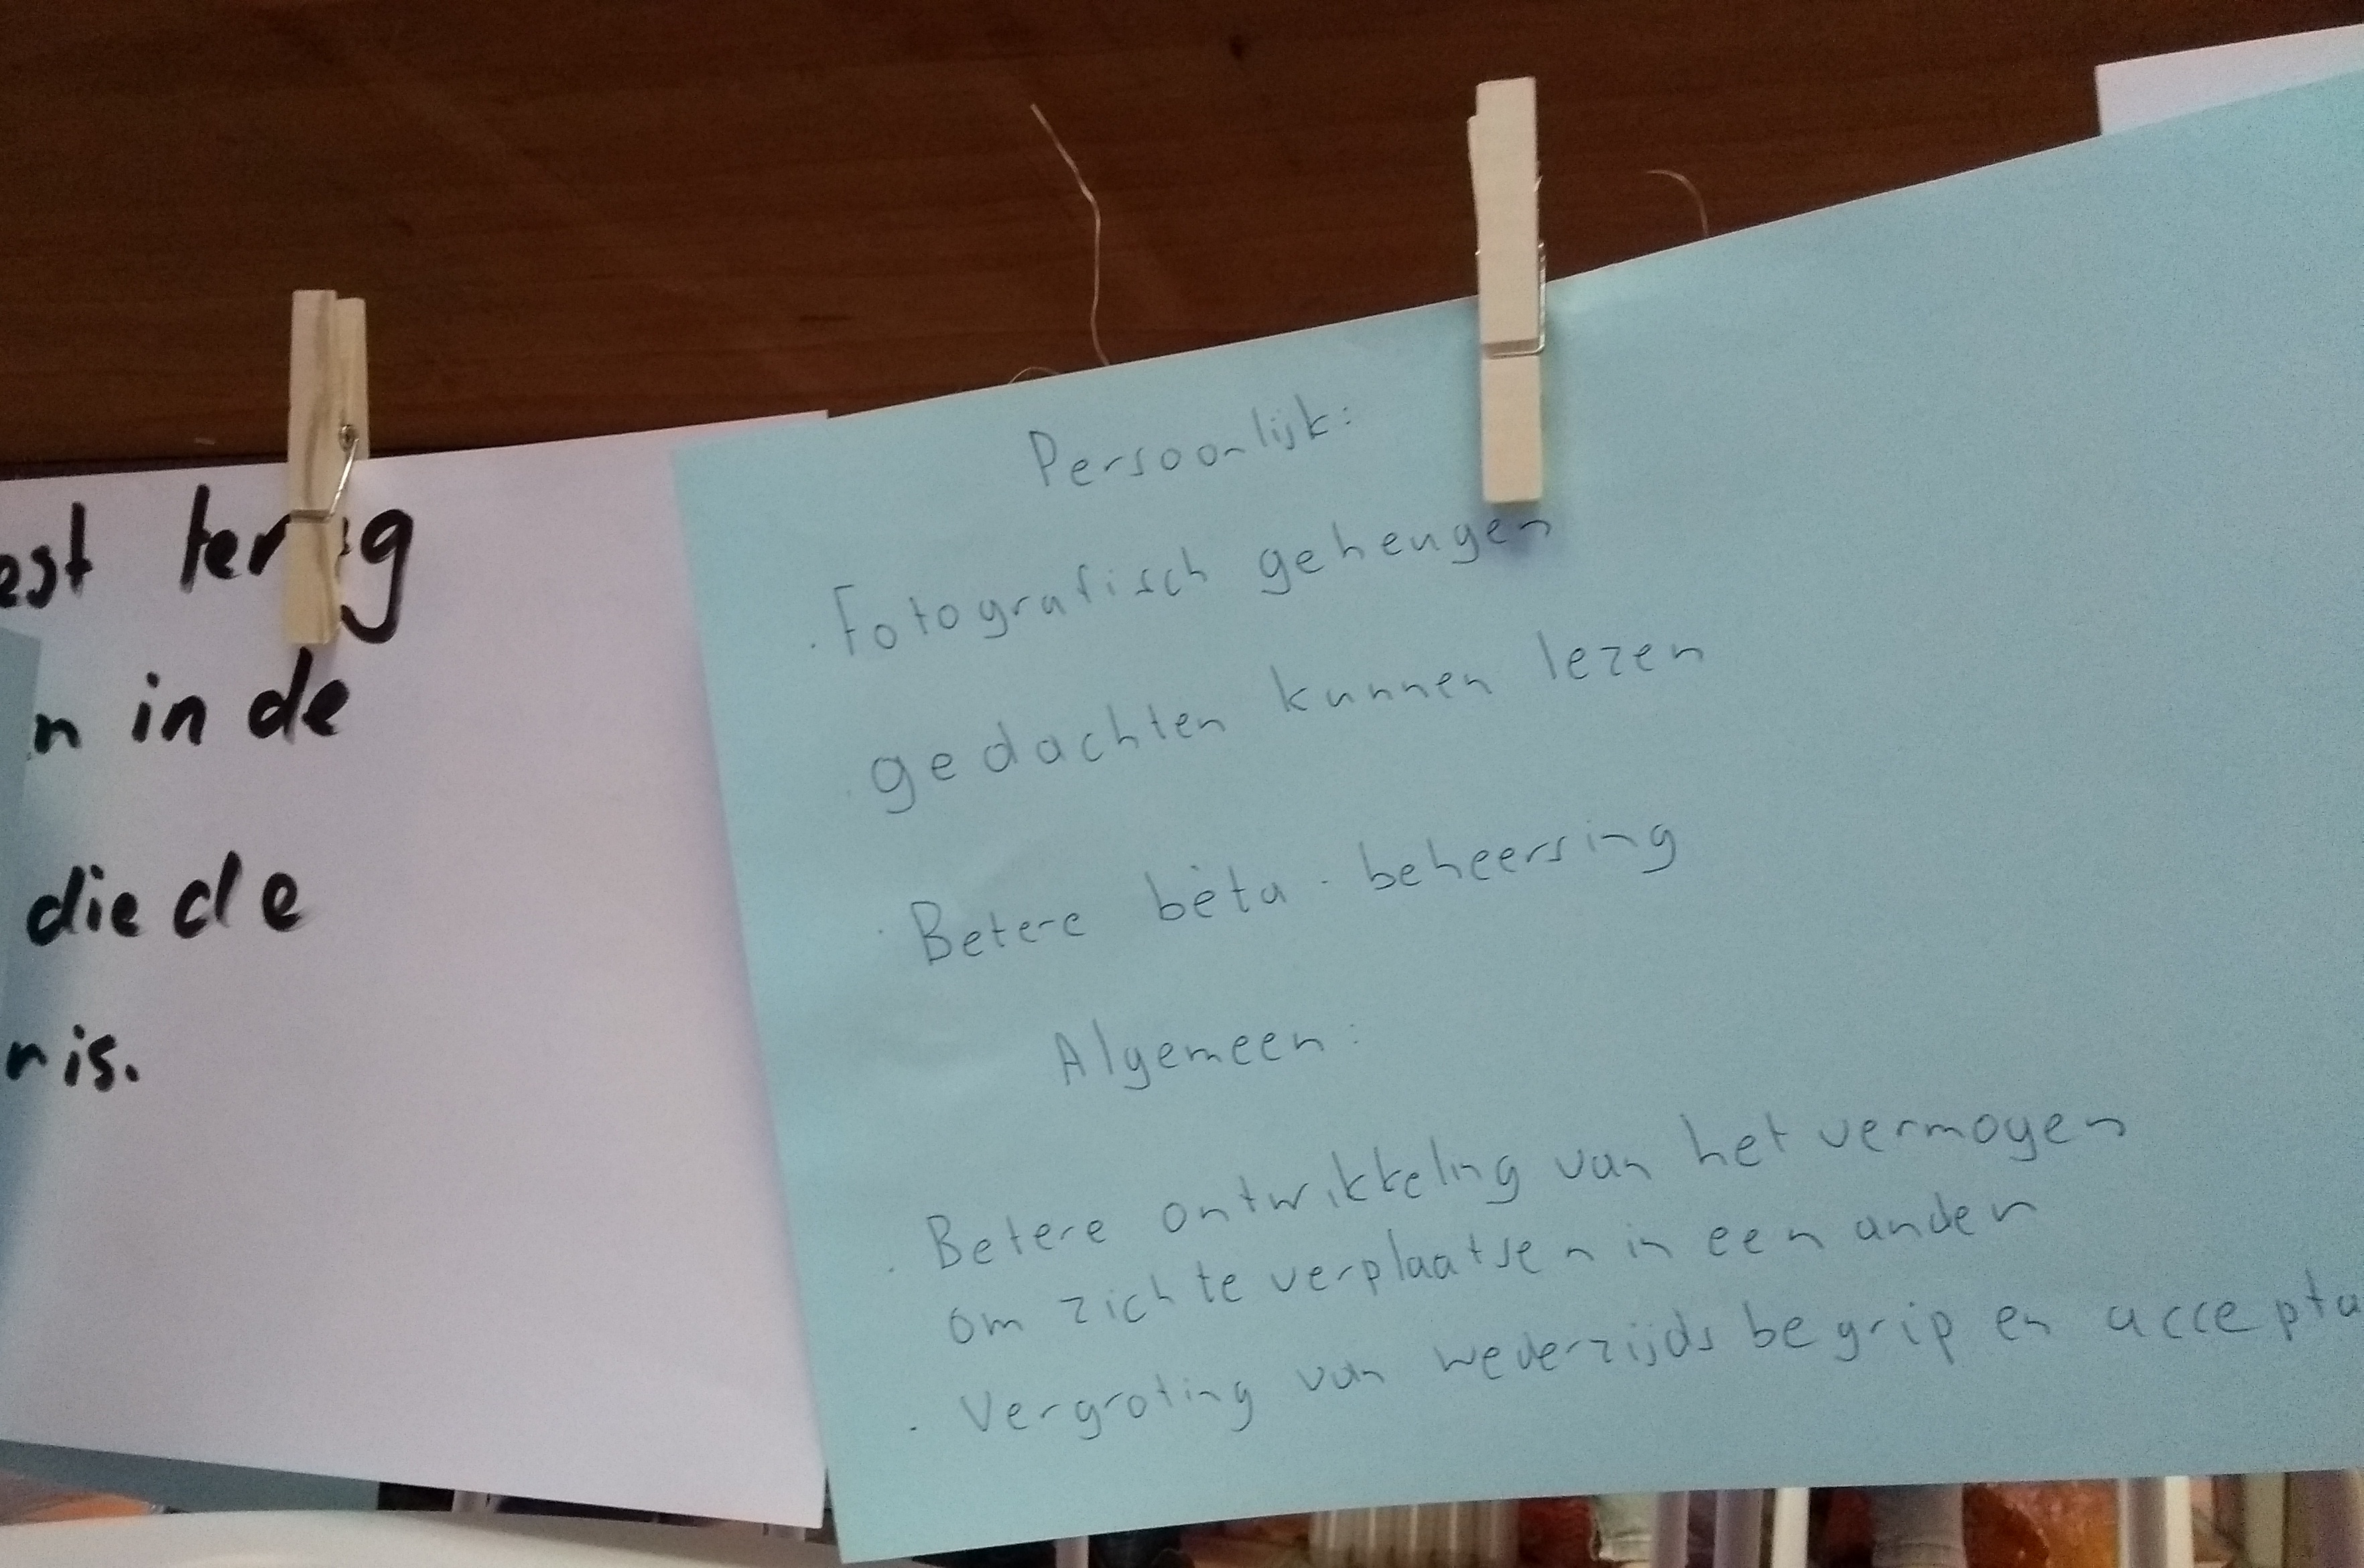 in de
die de
is.
Persoonlijk:
. Fotografisch geheugen
. gedachten kunnen lezen
. Betere bèta - beheersing
Algemeen:
. Betere ontwikkeling van het vermogen
om zich te verplaatsen in een ander
. Vergroting van wederzijds begrip en accepta